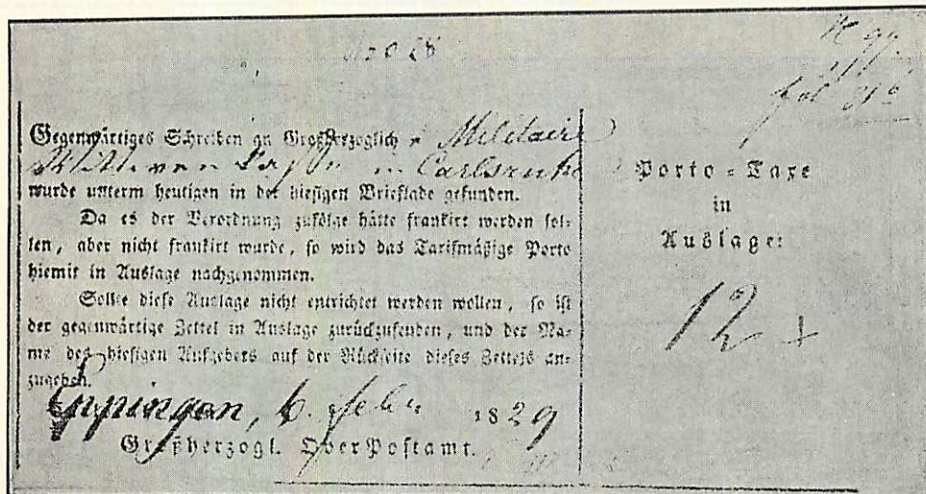 Gegenwärtiges Schreiben an Großherzoglich Militaire
in Carlsruhe
wurde unterm heutigen in der hiesigen Brieflade gefunden.
Da es der Verordnung zufolge hätte frankirt werden sol-
len, aber nicht frankirt wurde, so wird das Tarifmäßige Porto
hiemit in Auslage nachgenommen.
Sollte diese Auslage nicht entrichtet werden wollen, so ist
der gegenwärtige Zettel in Auslage zurückzusenden, und der Na-
me des hiesigen Aufgebers auf der Rückseite dieses Zettels an-
zugeben.
Eppingen, 6. Febr 1829
Großherzogl. OberPostamt.
Porto-Taxe
in
Auslage:
12 x